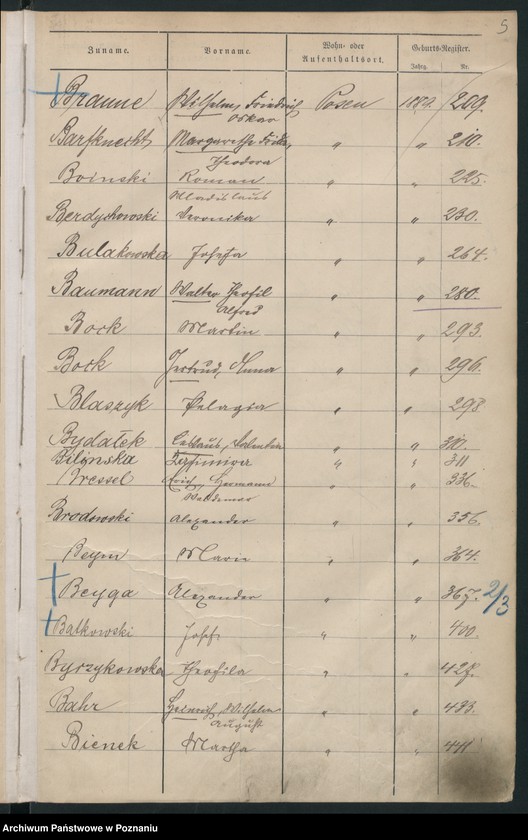 5
Zuname. Vorname. Wohn- oder Aufenthaltsort. Geburts-Register.
Jahrg. Nr.
Braune Wilhelm, Friedrich Posen 1884 209.
Oskar
Barfknecht Margarethe Frida, " " 210.
Theodora
Boinski Roman " " 225.
Wladislaus
Berdychowski Veronika " " 230.
Bulakowska Josefa " " 264.
Baumann Walter Theofil " " 280.
Alfred
Bock Martin " " 293.
Bock Gertrud, Anna " " 296.
Blaszyk Pelagia " " 298
Bydałek Valentin " " 310.
Bilinska " " 311
Bressel Erich, Hermann " " 336.
Waldemar
Brodowski Alexander " " 356.
Beym Marie " " 364.
Beyga Alexander " " 367. 2/3
Batkowski Josef. " " 400.
Byrzykowska Theofila " " 427.
Bahr Heinrich, Wilhelm " " 433.
August
Bienek Martha " " 441
Archiwum Państwowe w Poznaniu